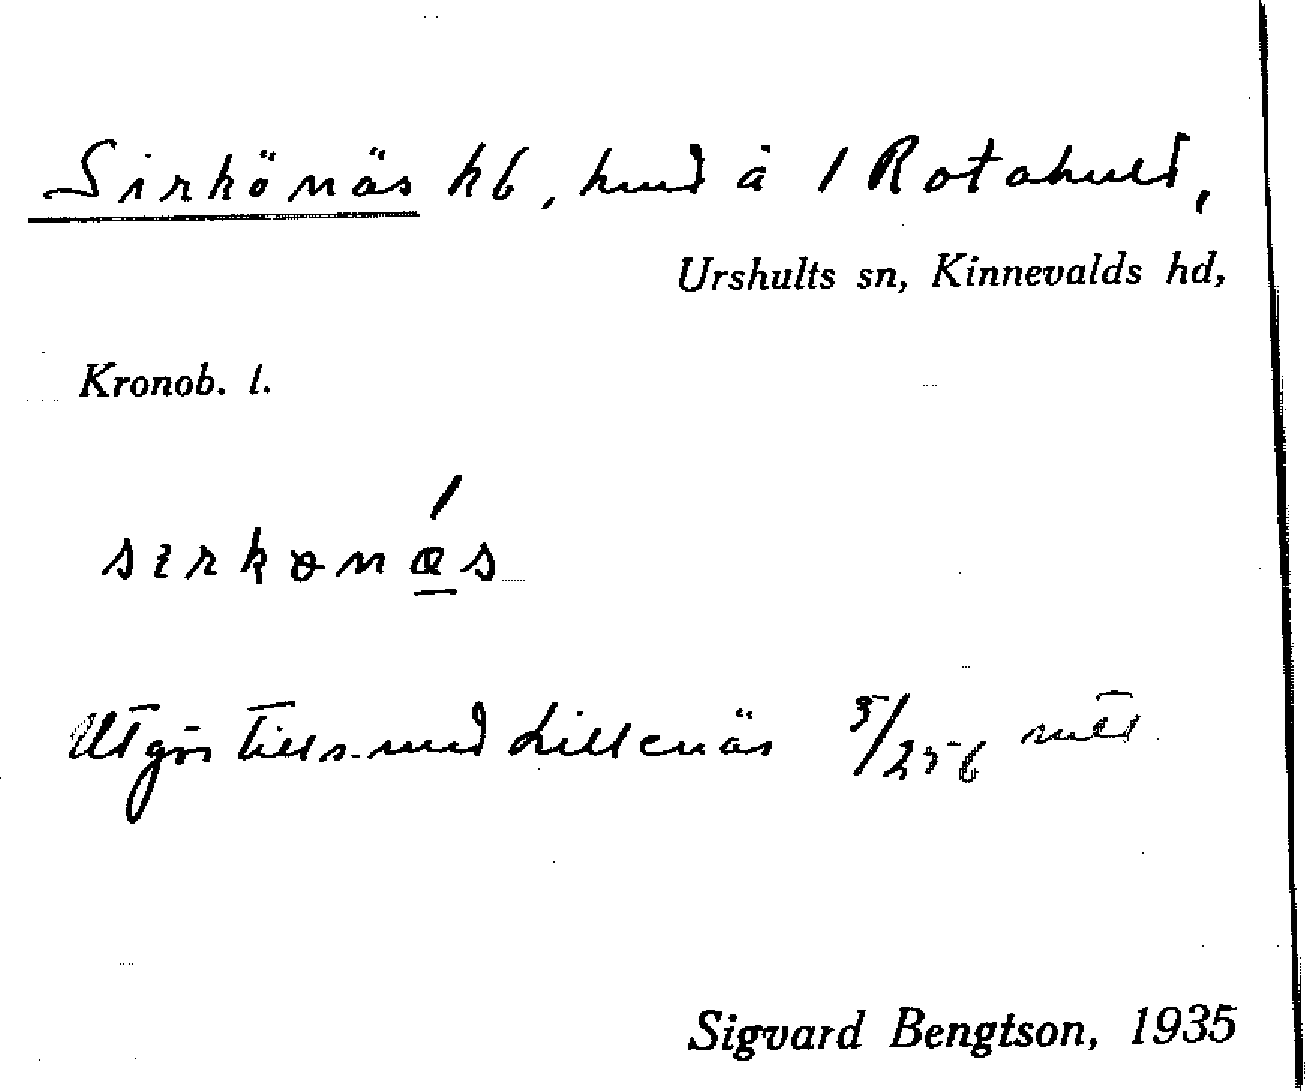 Sirkönäs hb, hmd å 1 Rotahult,
Urshults sn, Kinnevalds hd,
Kronob. l.
sırkɵnǽ̲s
Utgör tills. med Lillenäs 5/256 mtl
Sigvard Bengtson, 1935